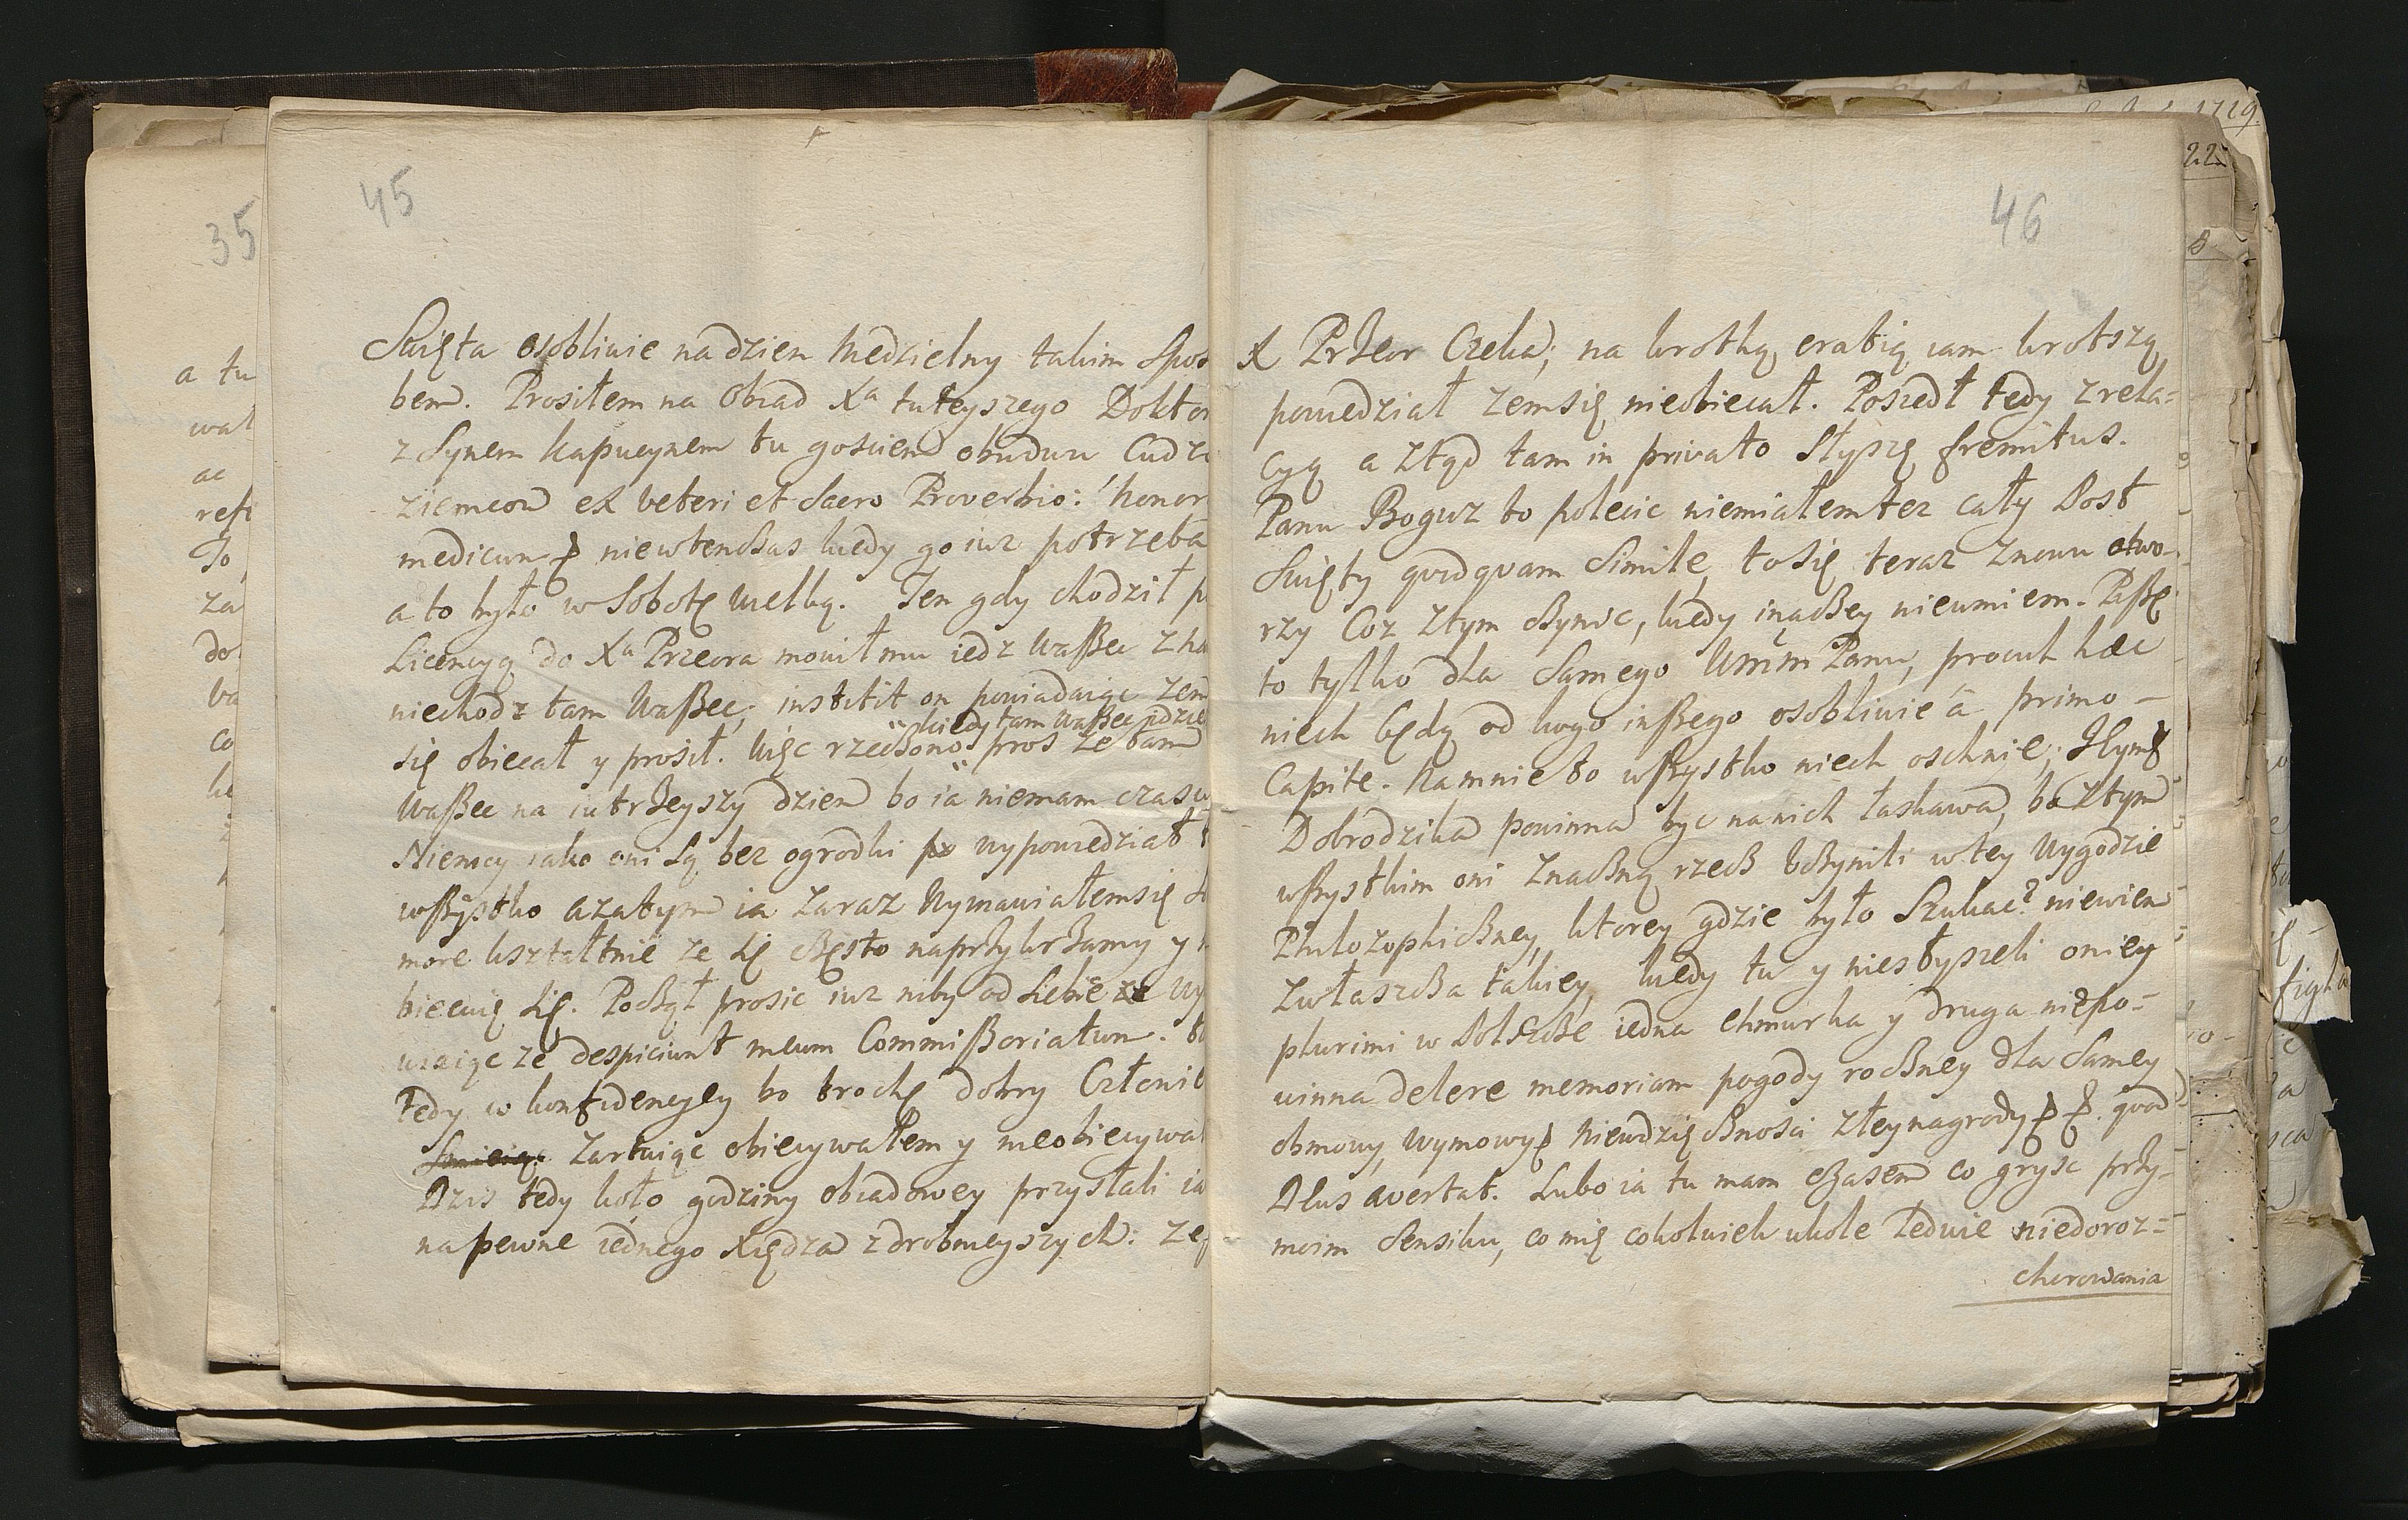 45
Swięta osobliwie na dzien Niedzielny takim Spos
bem. Prosiłem na Obiad Xa tuteyszego Doktor
z Synem Kapucynem tu gosciem obudwu Cudzo
ziemcow ex veteri et Sacro Proverbio: honor
medicum niewtenczas kiedy go iuz potrzeba
a to było w Sobotę Wielką. Ten gdy chodził p
Licencyą do Xa Przeora mowił mu iedz Waszec z
niechodz tam Waszec, institit on powiadaiąc zem
kiedy tam Waszec idzie
się obiecał y prosił. Więc rzeczono pros ze tam
Waszec na iutrzeyszy dzien bo ia niemam czasu
Niemcy iako oni są bez ogrodki wypowiedział
wszystko a zatym ia zaraz Wymawiałem się
more kształtnie ze się często naprzykrzamy y
biecuię się. Począł prosic iuz niby od siebie
uzaiąc ze despiciunt meum Commissoriatum.
Tedy w konfidencyey bo trochę dobry Człowi
zartuiąc obiecywałem y nieobiecywał
Dzis tedy koło godziny obiadowey przysłali ia
napewne iednego Xiędza zdrobnieyszych: ze
46
X Przeor Czeka; na krotką eratią iam krotszą
powiedział zem się nieobiecał. Poszedł tedy z rela=
cyą a ztąd tam in privato słyszę fremitus.
Panu Bogu z to polecic niemiałem tez cały Post
Swięty quidquam Simile, to się teraz znowu otwo-
rzy Coz ztym czynic, kiedy inaczey nieumiem. Piszę
to tylko dla Samego Wmm Pana, procul hæc
niech będą od kogo inszego osobliwie â primo -
Capite. Na mnie to wszystko niech oschnie; Jeym
Dobrodzika powinna byc na nich łaskawa, bo ztym
wszystkim oni znaczną rzecz uczynili w tey Wygodzie
Philozophiczney, ktorey gdzie było Szukac? niewiem
zwłaszcza takiey, kiedy tu y niesłyszeli oniey
plurimi w Polszcze iedna chmurka y druga niepo=
winna delere memoriam pogody roczney dla samey
obmowy, wymowy niewdzięcznosci złey nagrody quod
Deus avertat. Lubo ia tu mam czasem co grysc przy-
moim Sensiku, co mię cokolwiek ukole ledwie niedoroz=
chorowania
35
a tu
wał
ac
refi
To
za
do
ba
co
1719
22